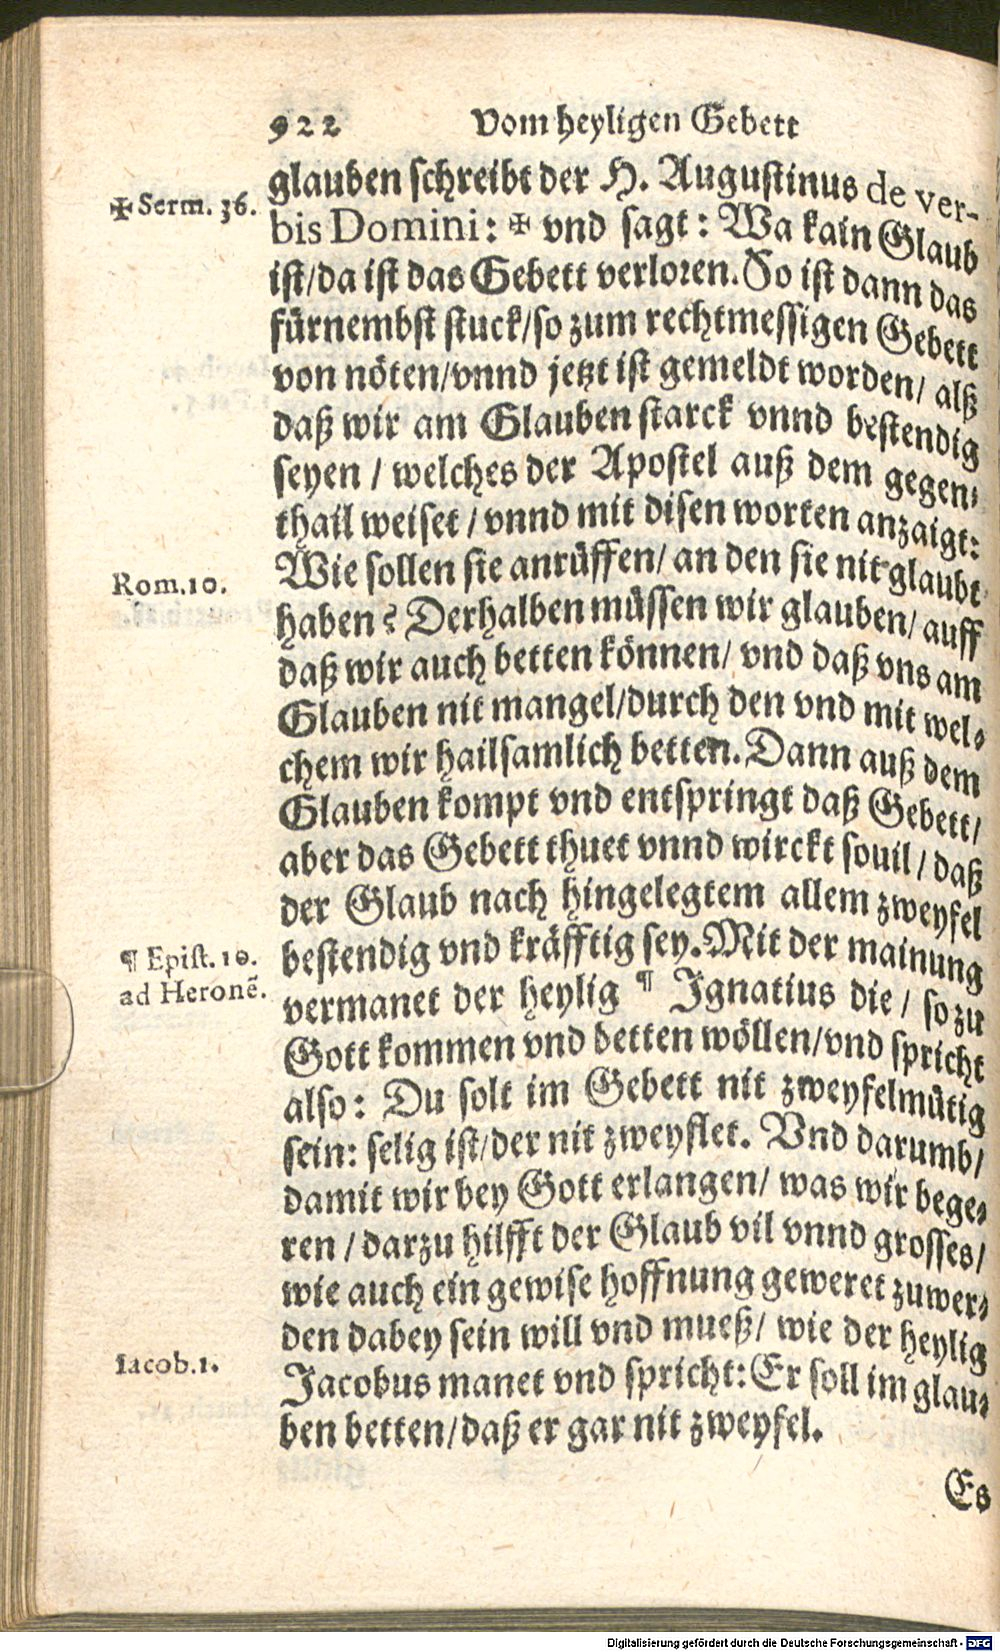 922 Vom heyligen Gebett
glauben schreibt der H. Augustinus de ver-
✠ Serm. 36.
bis Domini: ✠ vnd sagt: Wa kain Glaub
ist/da ist das Gebett verloren. So ist dann das
fürnembst stuck/so zum rechtmessigen Gebett
von nöten/vnnd jetzt ist gemeldt worden/ alß
daß wir am Glauben starck vnnd bestendig
seyen / welches der Apostel auß dem gegen-
thail weiset / vnnd mit disen worten anzaigt:
Rom.10.
Wie sollen sie anrüffen/ an den sie nit glaubt
haben? Derhalben müssen wir glauben/ auff
daß wir auch betten können/ vnd daß vns am
Glauben nit mangel/durch den vnd mit wel-
chem wir hailsamlich betten. Dann auß dem
Glauben kompt vnd entspringt daß Gebett/
aber das Gebett thuet vnnd wirckt souil / daß
der Glaub nach hingelegtem allem zweyfel
¶ Epist. 10.
ad Heronē.
bestendig vnd kräfftig sey. Mit der mainung
vermanet der heylig ¶ Ignatius die / so zu
Gott kommen vnd betten wöllen/vnd spricht
also: Du solt im Gebett nit zweyfelmütig
sein: selig ist/der nit zweyflet. Vnd darumb/
damit wir bey Gott erlangen/ was wir bege-
ren / darzu hilfft der Glaub vil vnnd grosses/
wie auch ein gewise hoffnung geweret zuwer-
den dabey sein will vnd mueß/ wie der heylig
Iacob.1.
Jacobus manet vnd spricht: Er soll im glau-
ben betten/daß er gar nit zweyfel.
Es
Digitalisierung gefördert durch die Deutsche Forschungsgemeinschaft - DFG